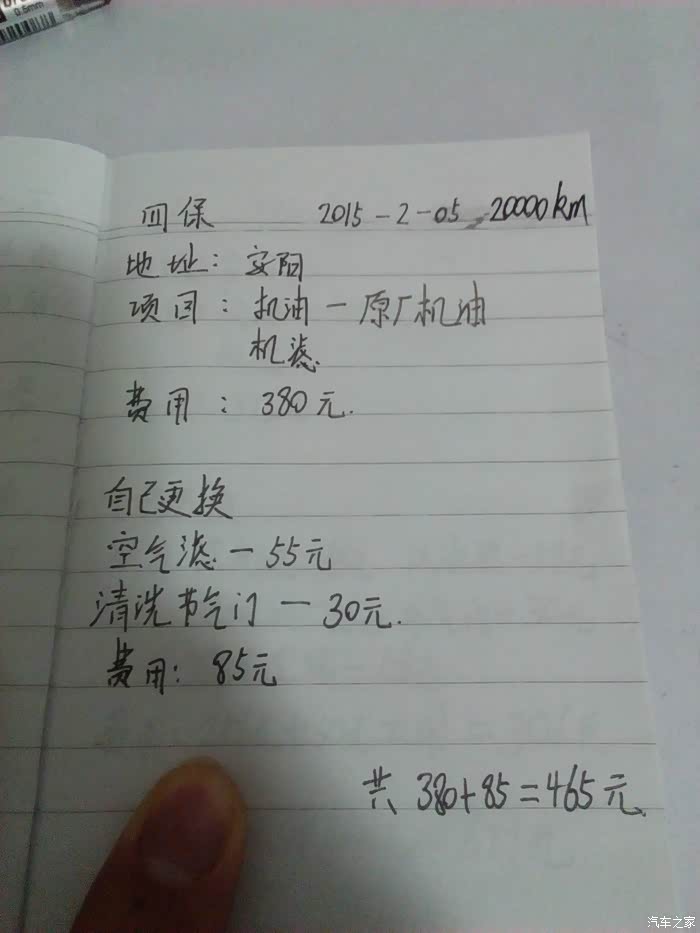 0.5mm
四保 2015-2-05 20000km
地址: 安阳
项目: 机油 — 原厂机油
机滤
费用: 380元.
自己更换
空气滤 — 55元
清洗节气门 — 30元.
费用: 85元
共 380+85=465元
汽车之家